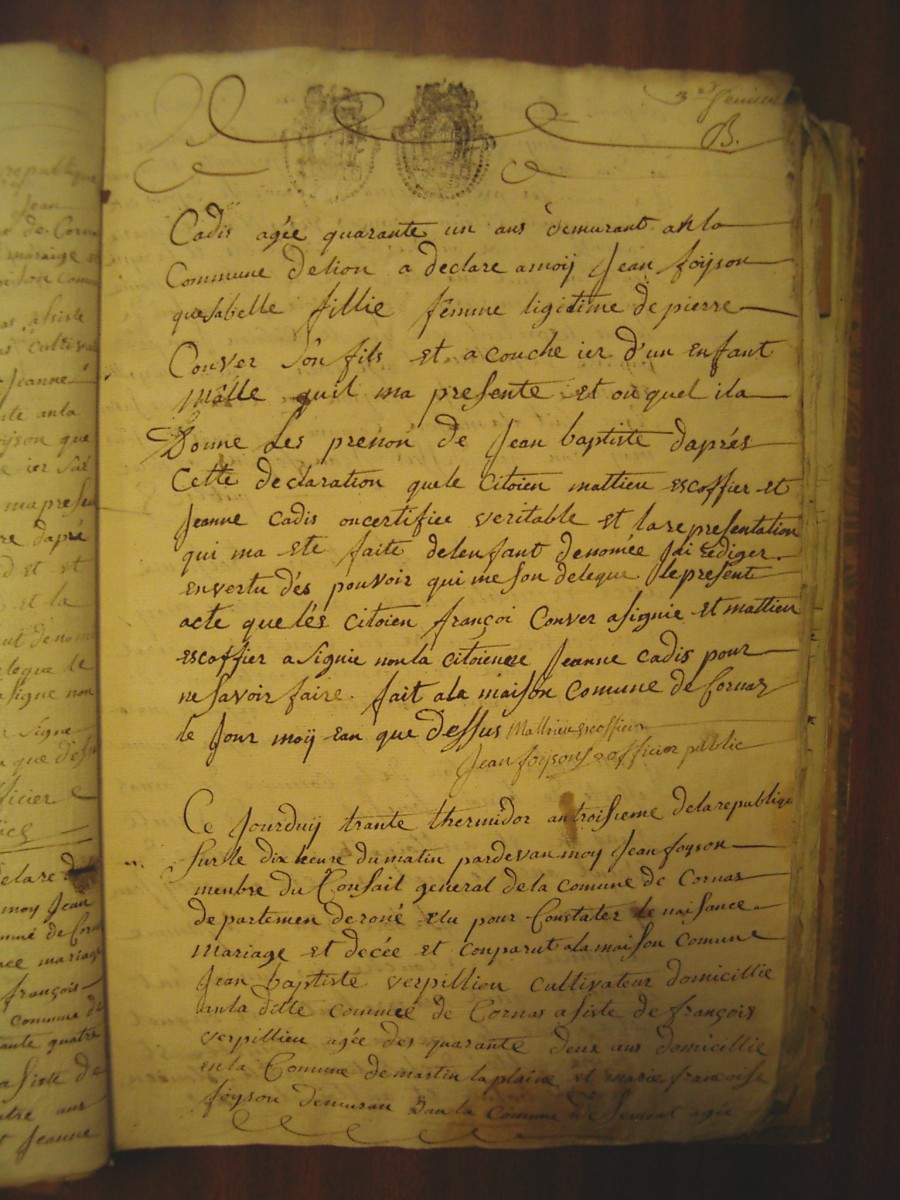 3e feuillet
B.
Cadis agée quarante un ans demurant anla
Commune delion a declare amoÿ Jean foÿson
quesabelle fillie femme ligitime de pierre
Conver son fils et acouche ier d'un enfant
malle quil ma presente et ouquel ila
Donne les prenon de Jean baptiste daprés
Cette declaration quele citoien mattieu escoffier et
Jeanne cadis oncertifiee veritable et larepresentation
qui ma ete faite delenfant denomée Jai rediger
envertu dés pouvoir qui meson deleque lepresent
acte quelés citoien françoi Conver asignie et mattieu
escoffier asignie nonla citoienee Jeanne cadis pour
nesavoir faire. fait ala maison comune de Cornas
le Jour moÿ ean que dessus Mathieu escoffier
Jean foyson officier public
Ce Jourduÿ trante thermidor antroisieme delarepublique
surle dix heure du matin pardevan moy Jean foyson
menbre du Consail general dela comune de Cornas
departemen derone elu pour Constater le naisance
mariage et decée et conparut ala maison comune
Jean baptiste verpillion cultivateur domicillie
anla ditte commee de Cornas asiste de françois
verpillieu agée des quarante deux ans domicillie
enla Commune demartin laplaine et marie francoise
foyson demuran dan la Commune agée
republique
Jean
de Corna
mariage
asiste
cultiva
Jeanne
ite anla
ÿson que
e ier
mapresen
re dapré
d et et
et la
ut denom
eleque le
asigne non
signe
n que des
ficier
elare
moy Jean
mune de Corn
ace mariage
françois
commune de
ante quatre
asiste de
atre ans
t Jeanne